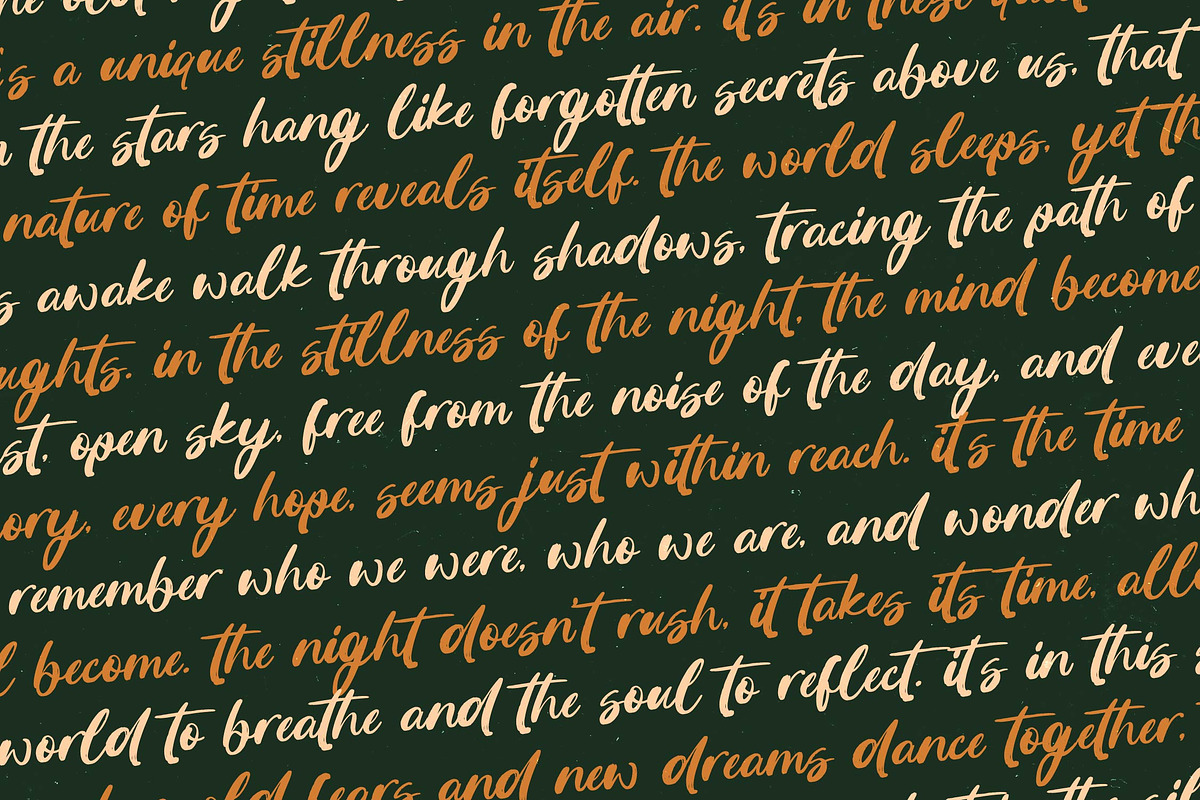 s a unique stillness in the air. it's in these
the stars hang like forgotten secrets above us, that
nature of time reveals itself. the world sleeps, yet th
s awake walk through shadows, tracing the path of
ughts. in the stillness of the night, the mind become
st, open sky, free from the noise of the day, and eve
ory, every hope, seems just within reach. it's the time
remember who we were, who we are, and wonder wh
l become. the night doesn't rush, it takes its time, all
world to breathe and the soul to reflect. it's in this
old fears and new dreams dance together,